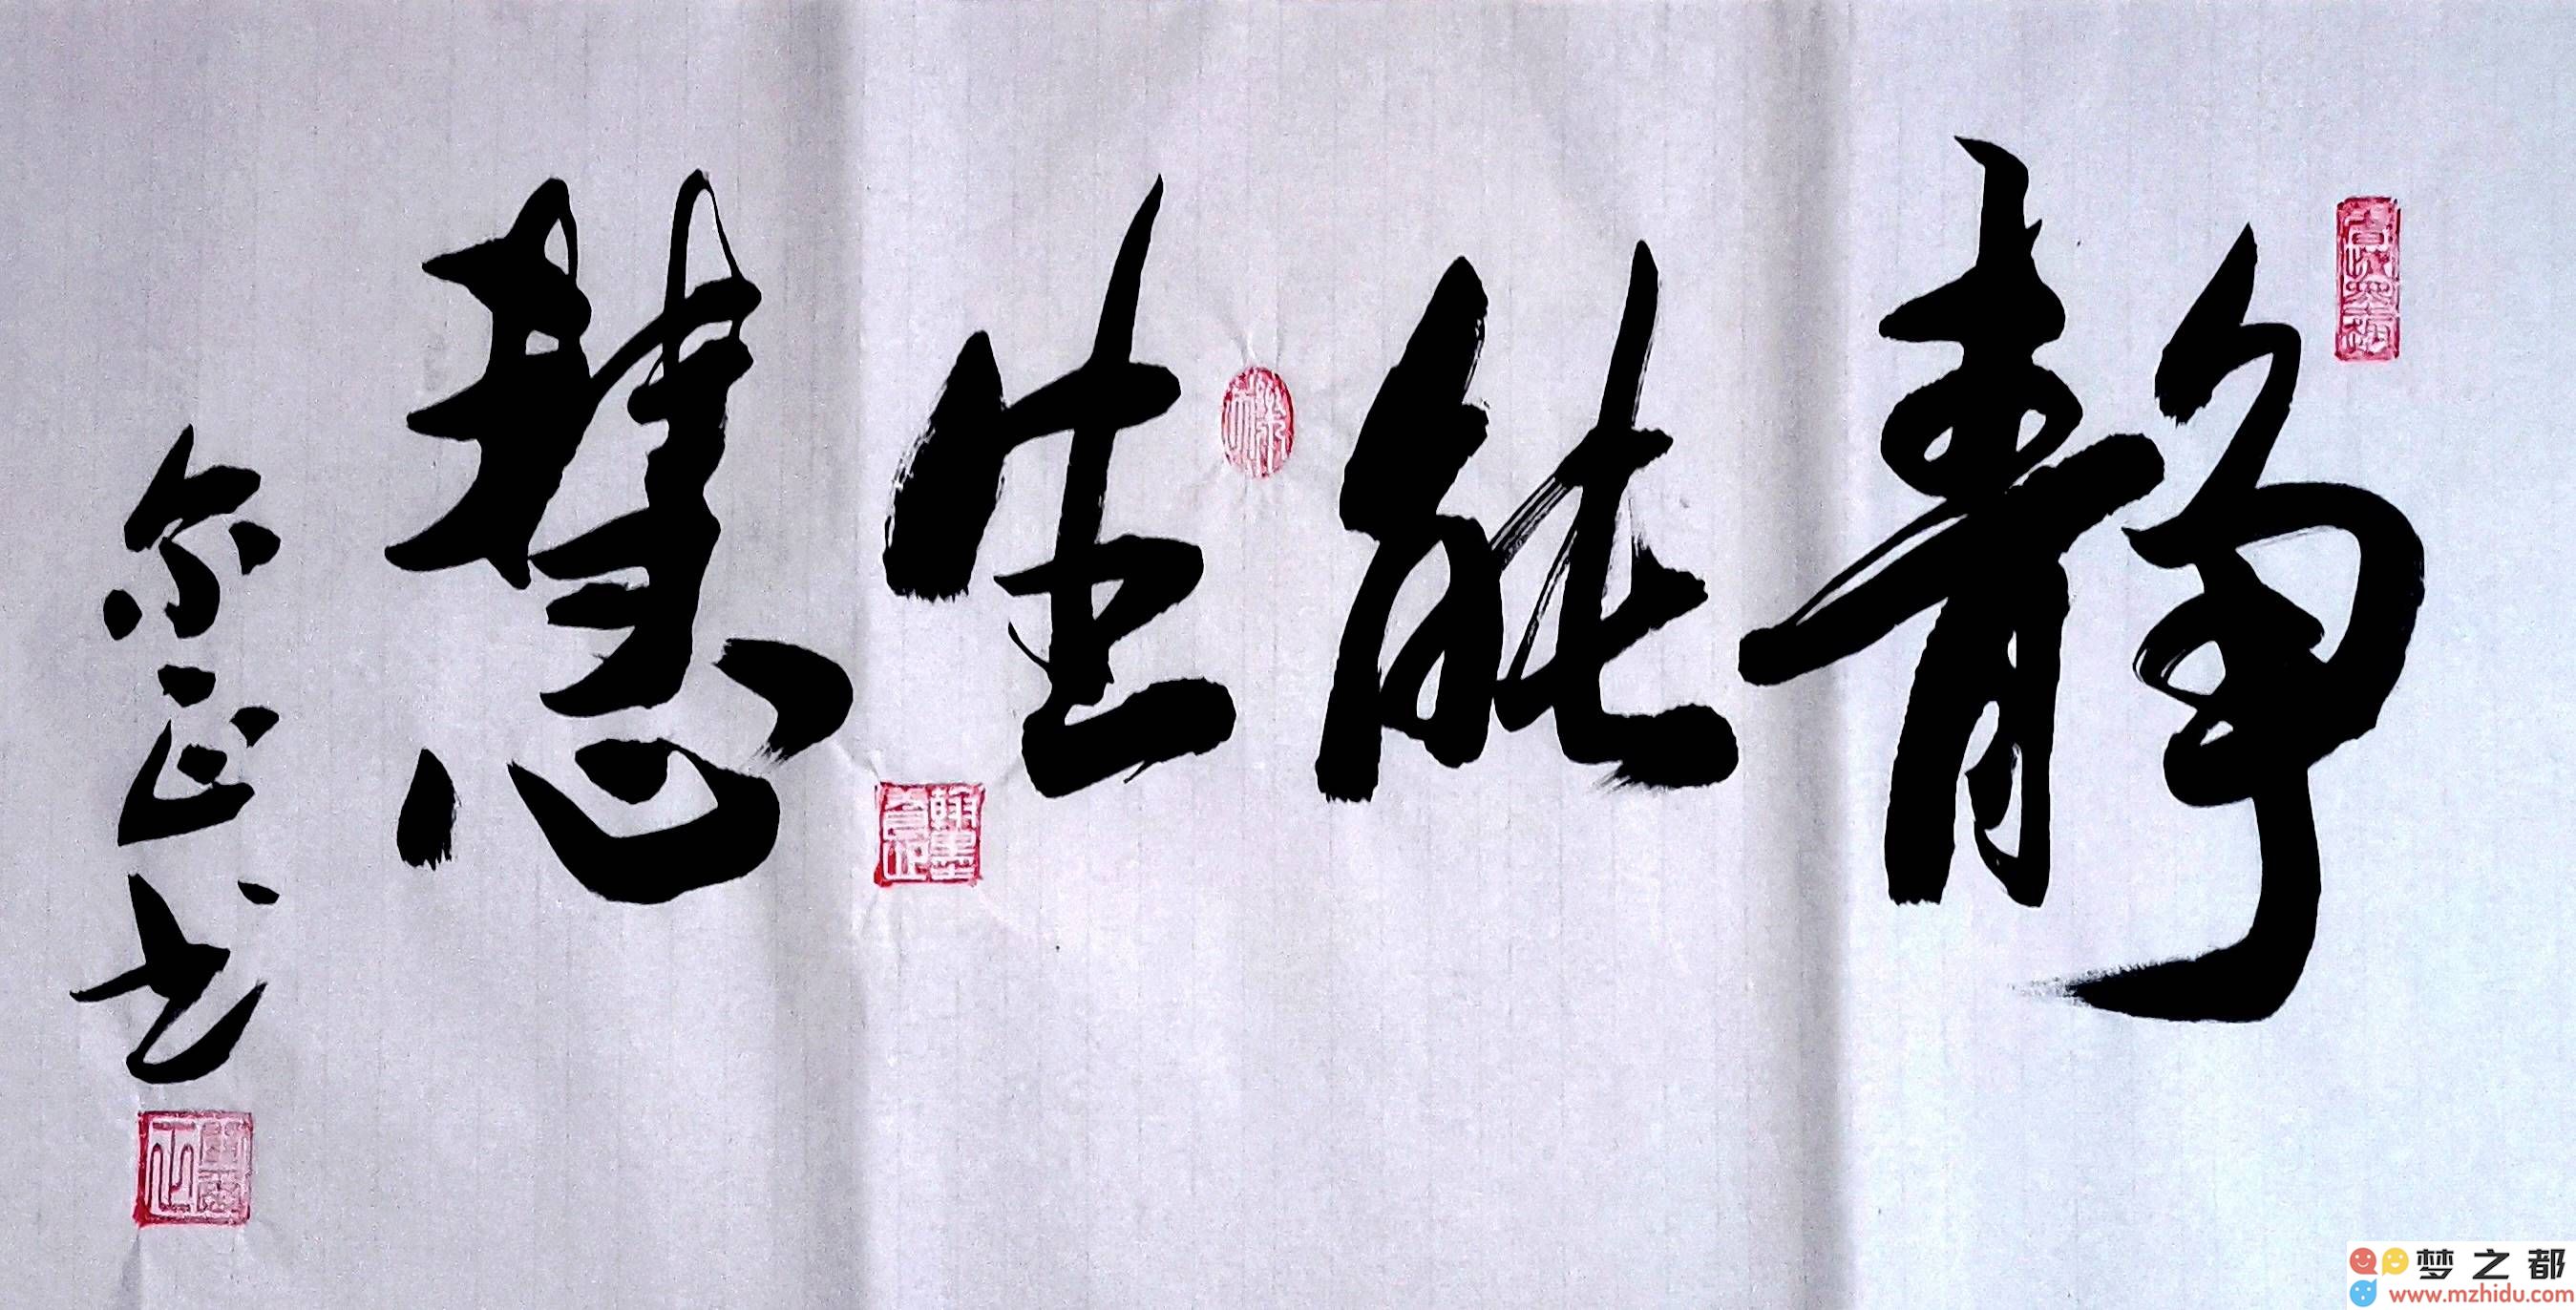 静能生慧
尔正书
翰墨
梦之都
www.mzhidu.com